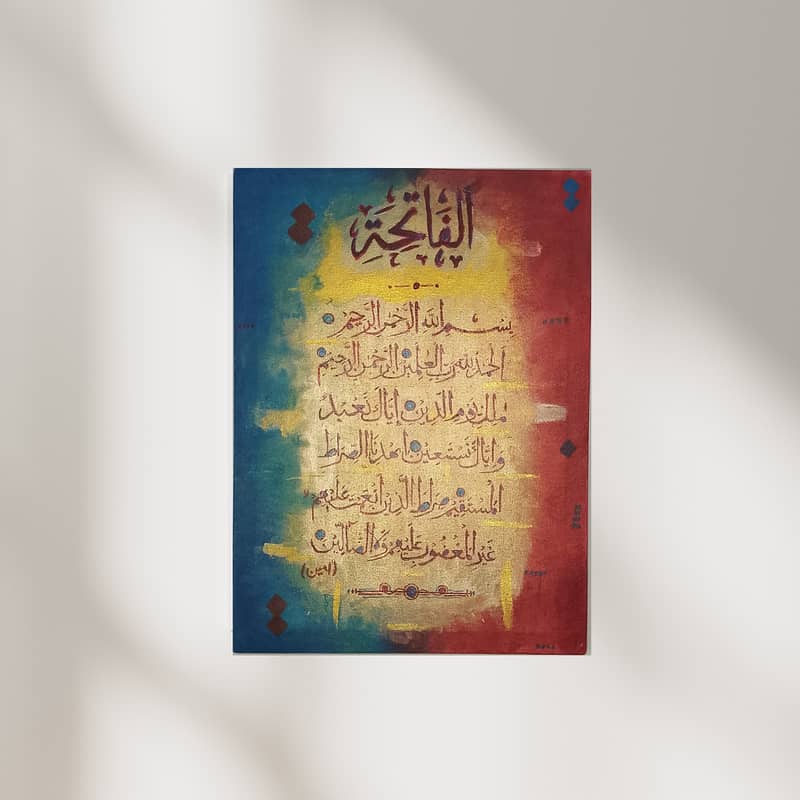 ألفَاتِحَةِ
بِسْمِ اللهِ الرَّحْمٰنِ الرَّحِيْمِ
اَلْحَمْدُ لِلّٰهِ رَبِّ الْعٰلَمِيْنَ الرَّحْمٰنِ الرَّحِيْمِ
مٰلِكِ يَوْمِ الدِّيْنِ إِيَّاكَ نَعْبُدُ
وَإِيَّاكَ نَسْتَعِيْنُ اِهْدِنَا الصِّرَاطَ
الْمُسْتَقِيْمَ صِرَاطَ الَّذِيْنَ أَنْعَمْتَ عَلَيْهِمْ
غَيْرِ الْمَغْضُوْبِ عَلَيْهِمْ وَلَا الضَّالِّيْنَ
(اٰمين)